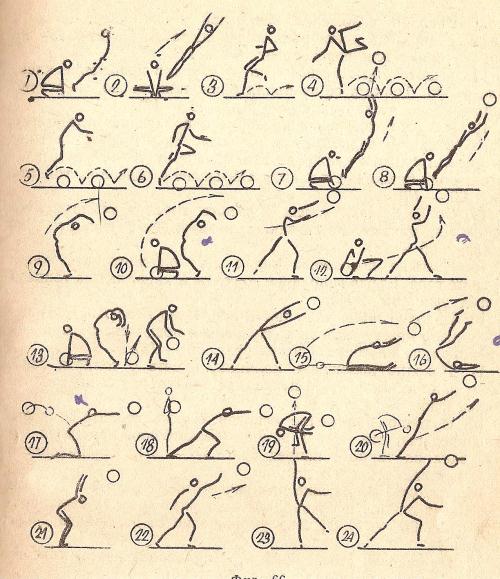 1 2 3 4
5 6 7 8
9 10 11 12
13 14 15 16
17 18 19 20
21 22 23 24
Фиг. 66